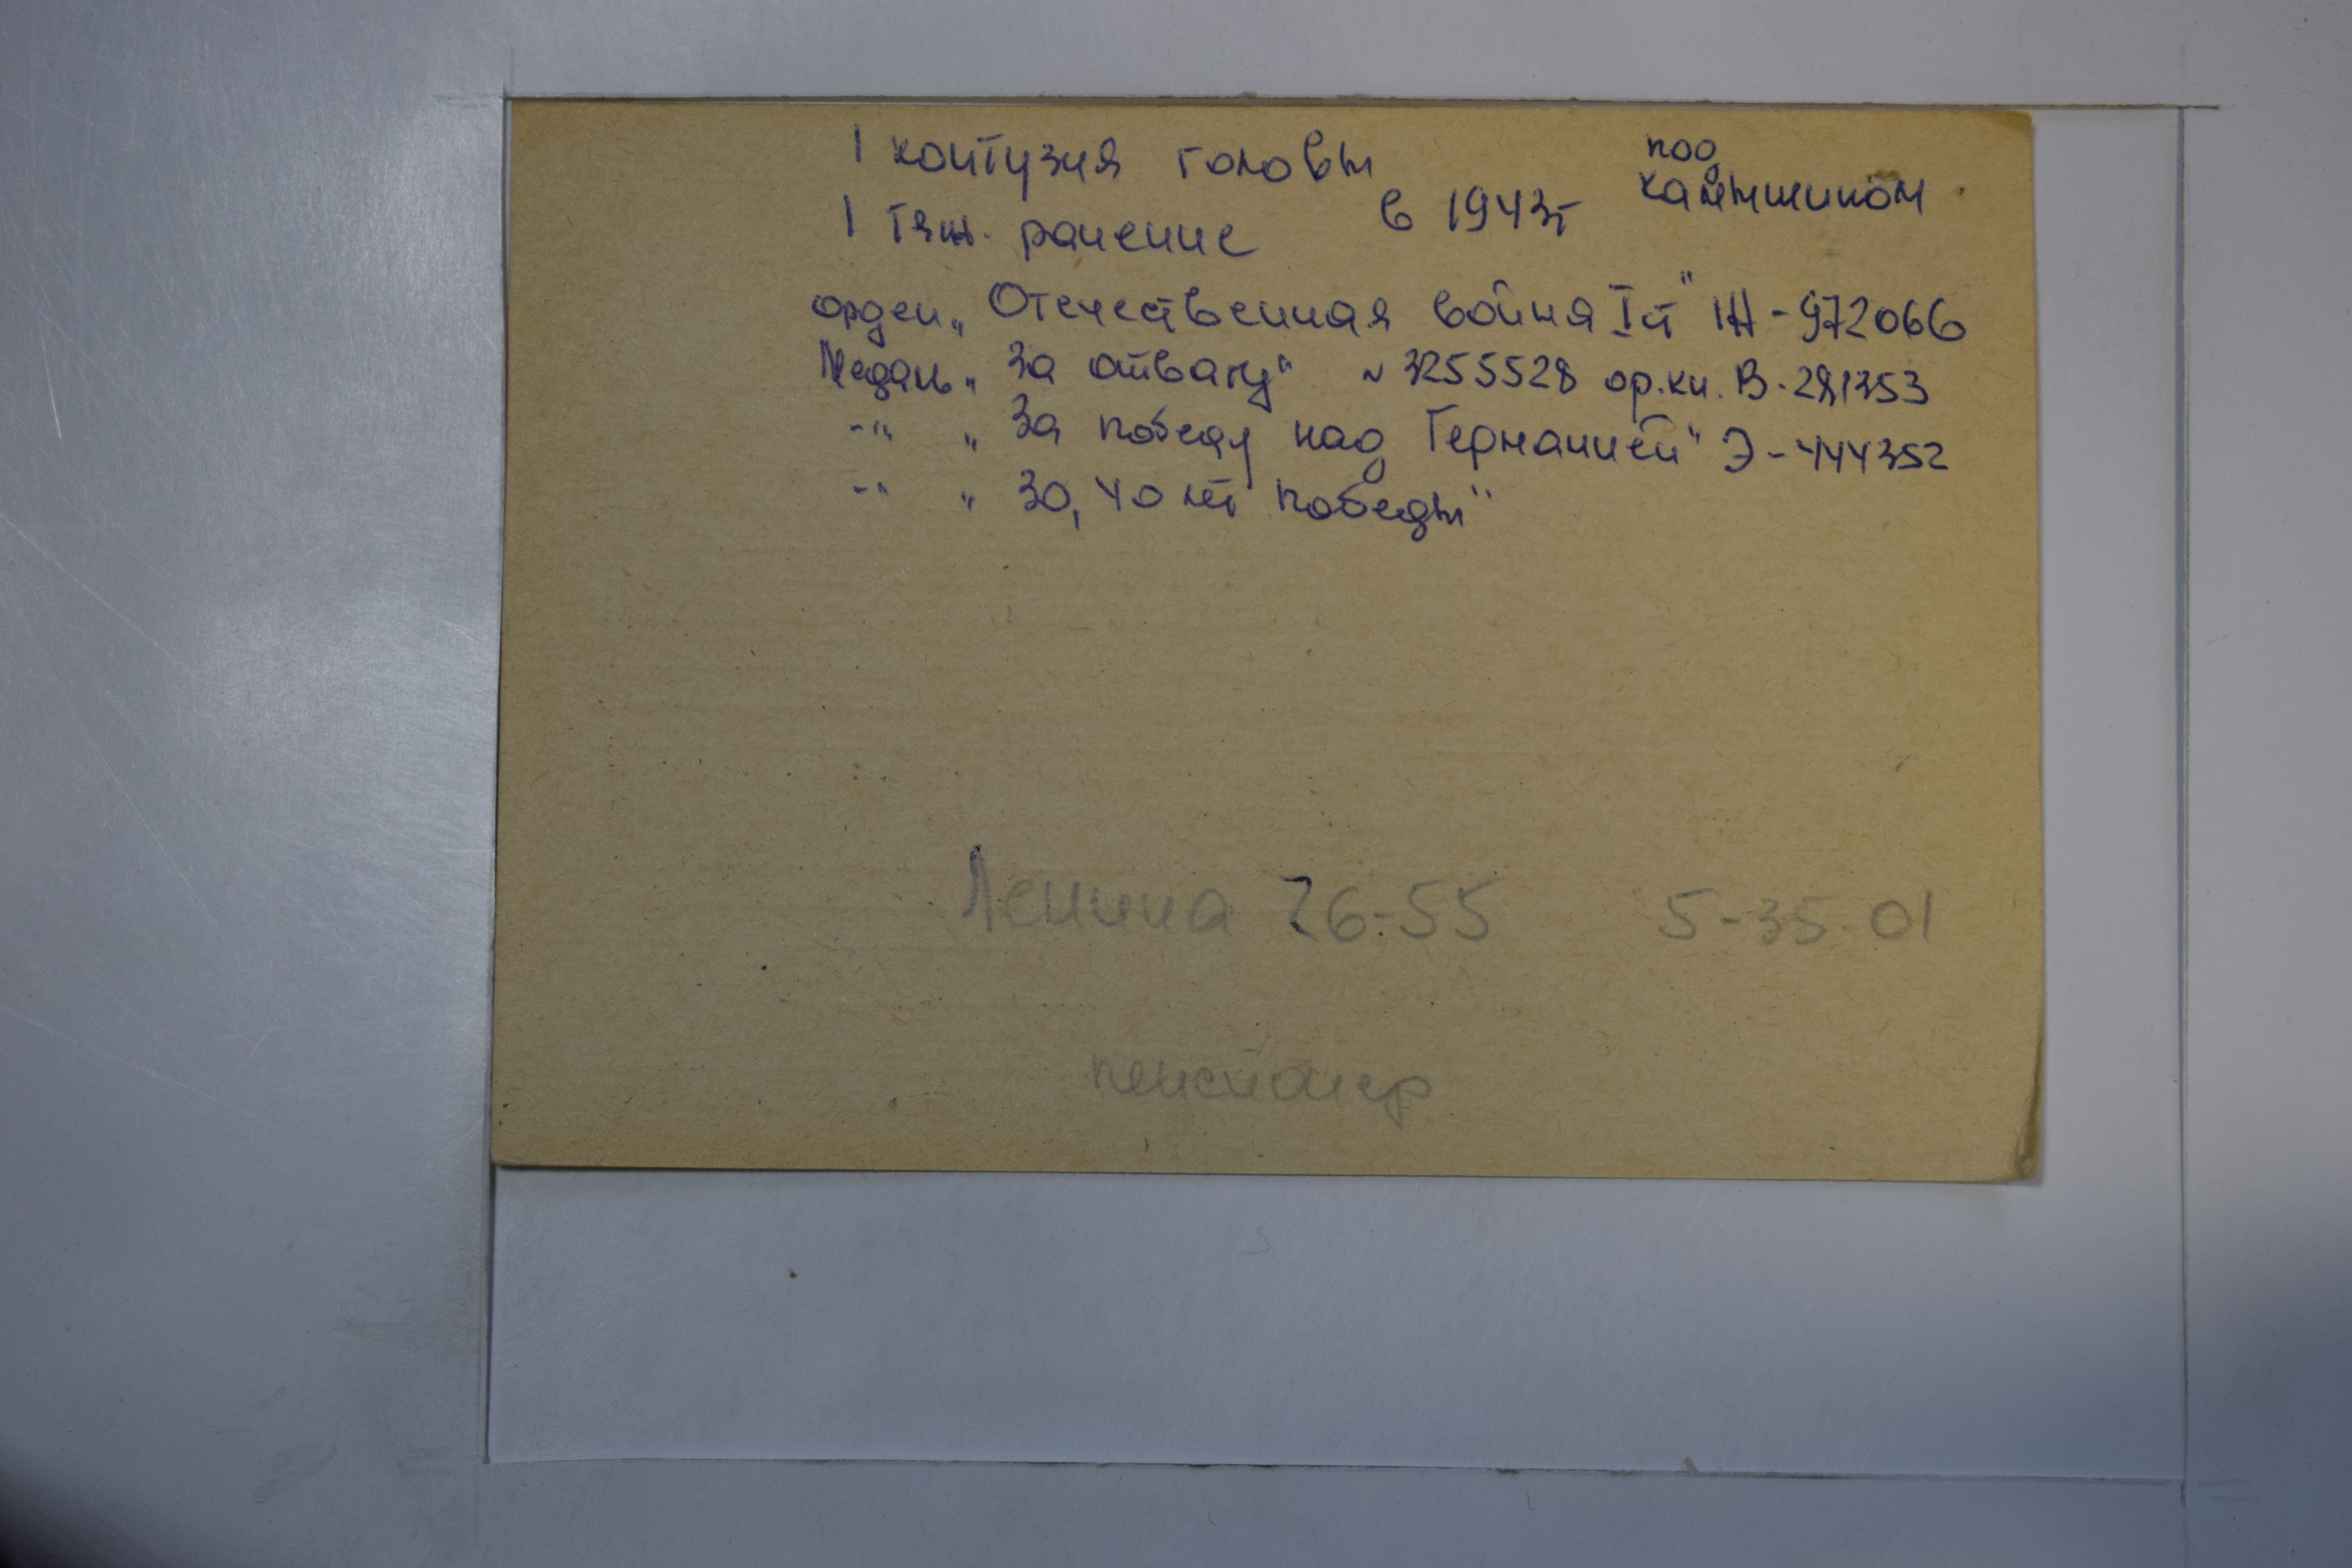 1 контузия головы под
1 тяж. ранение в 1943г Камышином.
орден „Отечественная война I ст" Н-972066
Медаль „За отвагу" № 3255528 ор.кн. В-281353
-"- „За победу над Германией" Э-444352
-"- „30, 40 лет победы"
Ленина 26-55 5-35-01
пенсионер